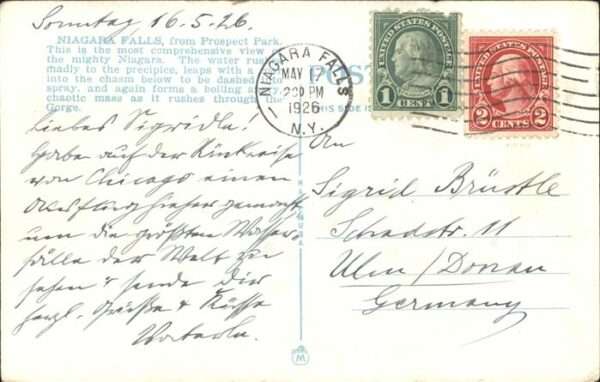 Sonntag 16.5.26.
NIAGARA FALLS, from Prospect Park.
This is the most comprehensive view of
the mighty Niagara. The water rushes
madly to the precipice, leaps with a
into the chasm below to be dashed into
spray, and again forms a boiling
chaotic mass as it rushes through the
Gorge.
Liebes Sigridle!
Habe auf der Rückreise
von Chicago einen
Ausflug hieher gemacht
um die größten Wasser-
fälle der Welt zu
sehen & sende Dir
herzl. Grüße & Küsse
Vaterle.
NIAGARA FALLS
MAY
2:30 PM
1926
N.Y.
POST
THIS SIDE
UNITED STATES POSTAGE
1 CENT 1
UNITED STATES POSTAGE
2 CENTS 2
An
Sigrid Brüstle
Schadstr. 11
Ulm/Donau
Germany
M